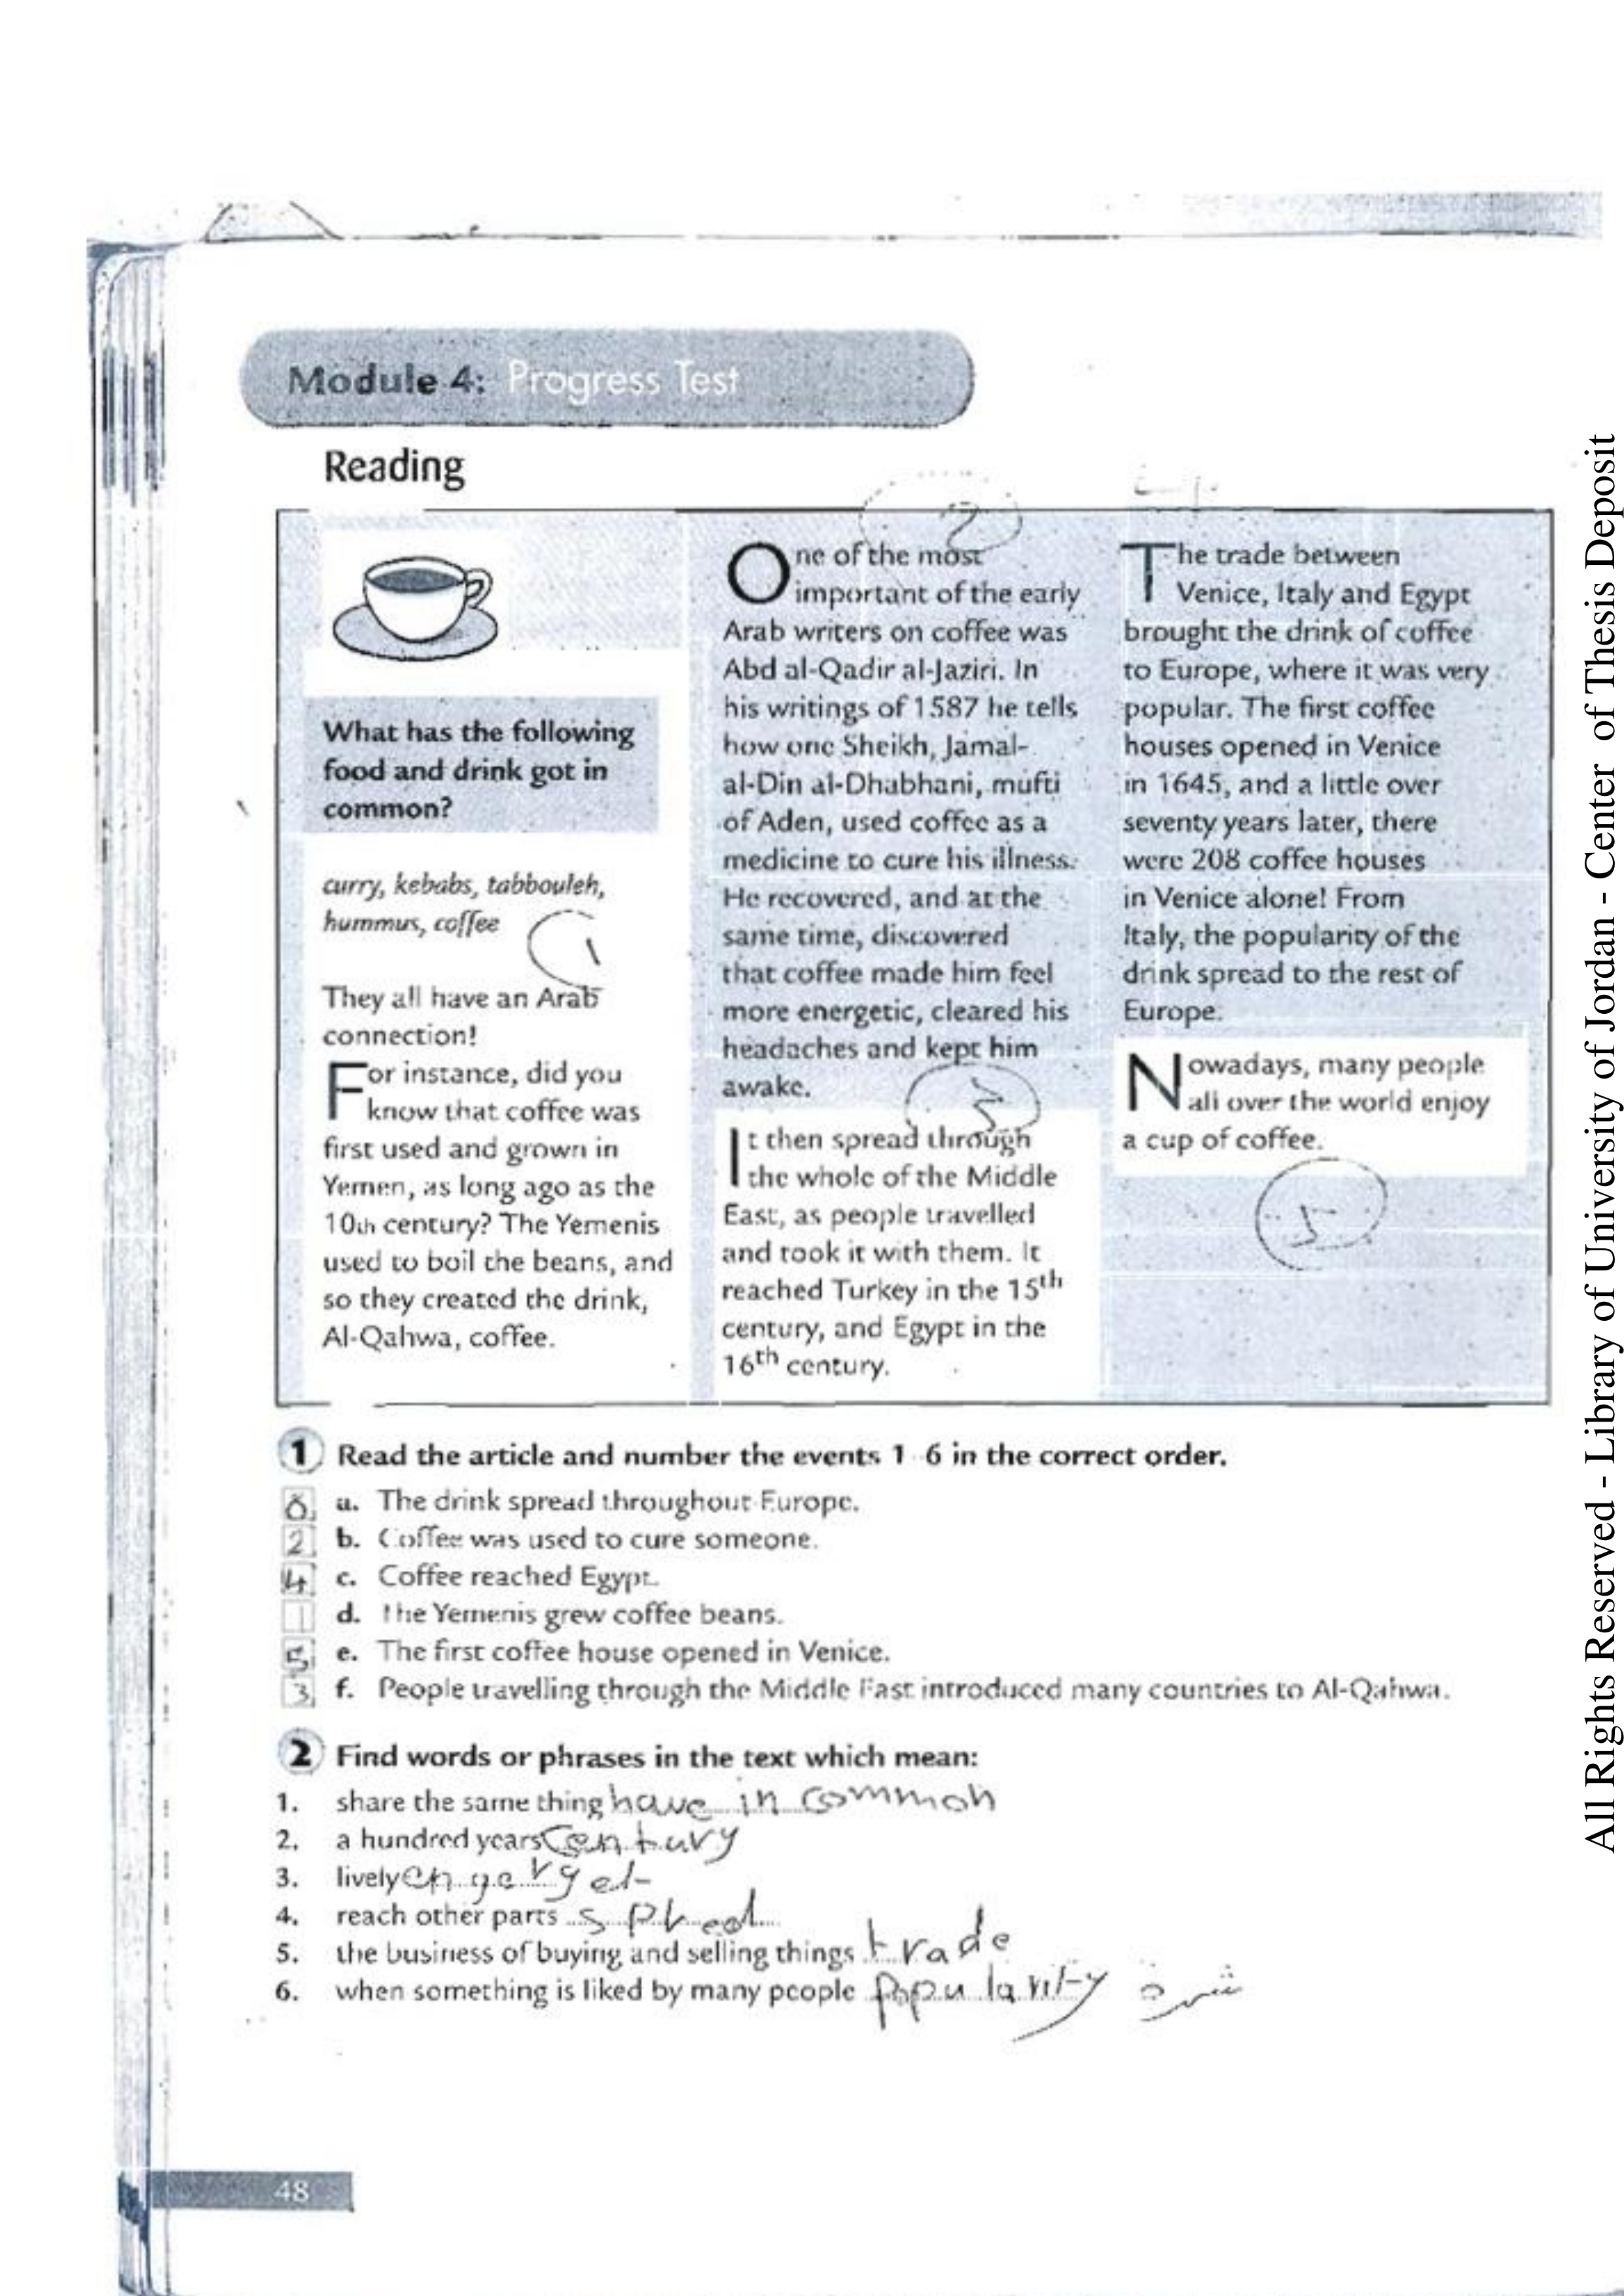 Module 4: Progress Test
Reading
What has the following
food and drink got in
common?
curry, kebabs, tabbouleh,
hummus, coffee
1
They all have an Arab
connection!
For instance, did you
know that coffee was
first used and grown in
Yemen, as long ago as the
10th century? The Yemenis
used to boil the beans, and
so they created the drink,
Al-Qahwa, coffee.
2
One of the most
important of the early
Arab writers on coffee was
Abd al-Qadir al-Jaziri. In
his writings of 1587 he tells
how one Sheikh, Jamal-
al-Din al-Dhabhani, mufti
of Aden, used coffee as a
medicine to cure his illness.
He recovered, and at the
same time, discovered
that coffee made him feel
more energetic, cleared his
headaches and kept him
awake.
3
It then spread through
the whole of the Middle
East, as people travelled
and took it with them. It
reached Turkey in the 15th
century, and Egypt in the
16th century.
The trade between
Venice, Italy and Egypt
brought the drink of coffee
to Europe, where it was very
popular. The first coffee
houses opened in Venice
in 1645, and a little over
seventy years later, there
were 208 coffee houses
in Venice alone! From
Italy, the popularity of the
drink spread to the rest of
Europe.
Nowadays, many people
all over the world enjoy
a cup of coffee.
5
1 Read the article and number the events 1 6 in the correct order.
a. The drink spread throughout Europe.
2 b. Coffee was used to cure someone.
4 c. Coffee reached Egypt.
1 d. The Yemenis grew coffee beans.
5 e. The first coffee house opened in Venice.
3 f. People travelling through the Middle East introduced many countries to Al-Qahwa.
2 Find words or phrases in the text which mean:
1. share the same thing have in common
2. a hundred years Century
3. lively
4. reach other parts
5. the business of buying and selling things trade
6. when something is liked by many people
48
All Rights Reserved - Library of University of Jordan - Center of Thesis Deposit